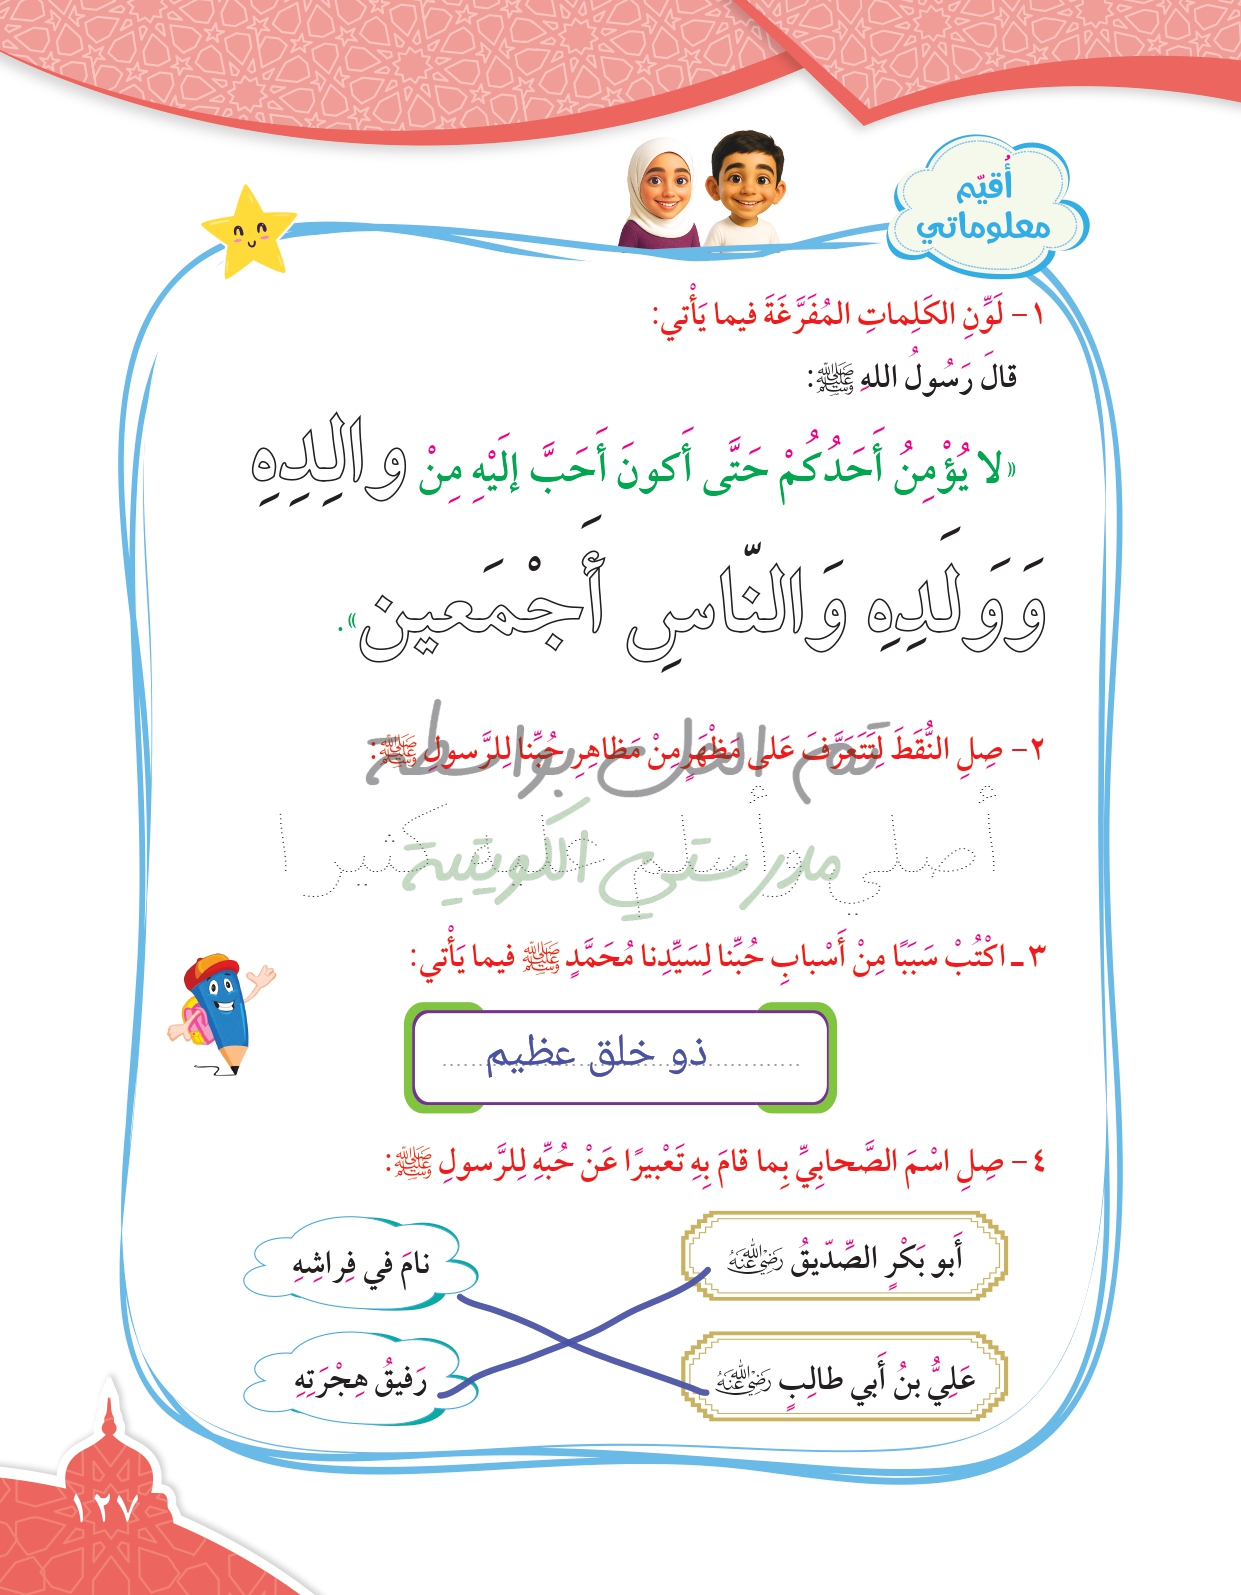 أُقيّم
معلوماتي
١- لَوِّنِ الكَلِماتِ المُفَرَّغَةَ فيما يَأْتي:
قالَ رَسُولُ اللهِ ﷺ:
«لا يُؤْمِنُ أَحَدُكُمْ حَتَّى أَكونَ أَحَبَّ إلَيْهِ مِنْ والِدِهِ
وَوَلَدِهِ وَالنّاسِ أَجْمَعين».
٢- صِلِ النُّقَطَ لِتَتَعَرَّفَ عَلى مَظْهَرٍ مِنْ مَظاهِرِ حُبِّنا لِلرَّسولِ ﷺ:
تم الحل بواسطة
أصلي وأسلم عليه كثيرا
مدرستي الكويتية
٣ـ اكْتُبْ سَبَبًا مِنْ أَسْبابِ حُبِّنا لِسَيِّدِنا مُحَمَّدٍ ﷺ فيما يَأْتي:
ذو خلق عظيم
٤- صِلِ اسْمَ الصَّحابِيِّ بِما قامَ بِهِ تَعْبيرًا عَنْ حُبِّهِ لِلرَّسولِ ﷺ:
أَبو بَكْرٍ الصِّدّيقُ رضي الله عنه نامَ في فِراشِهِ
عَلِيُّ بنُ أَبي طالِبٍ رضي الله عنه رَفيقُ هِجْرَتِهِ
١٢٧